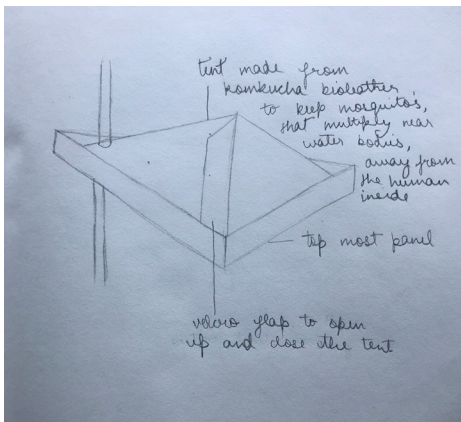 tent made from
komkucha bioleather
to keep mosquitos,
that multiply near
water bodies,
away from
the human
inside
top most panel
velcro flap to open
up and close the tent